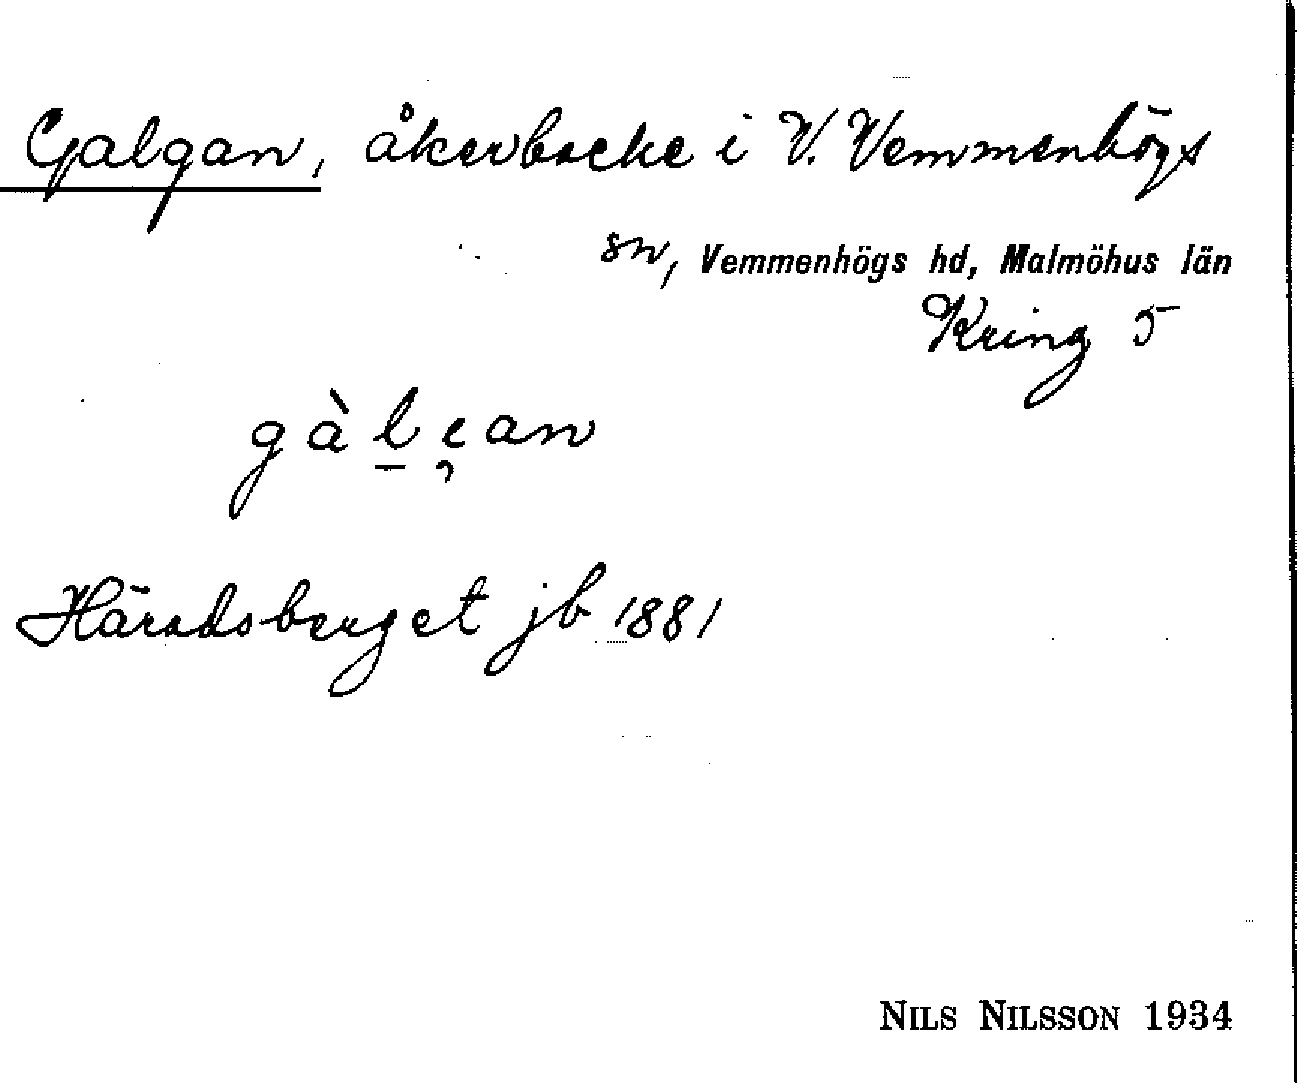 Galgan, åkerbacke i V. Vemmenhögs
sn, Vemmenhögs hd, Malmöhus län
Kring 5
gàl̠ę̀an
Häradsberget jb 1881
NILS NILSSON 1934